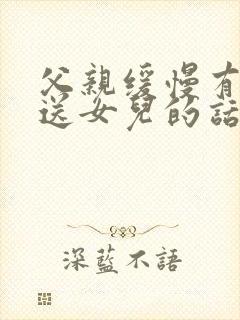 父親緩慢有
送女兒的話
深藍不語